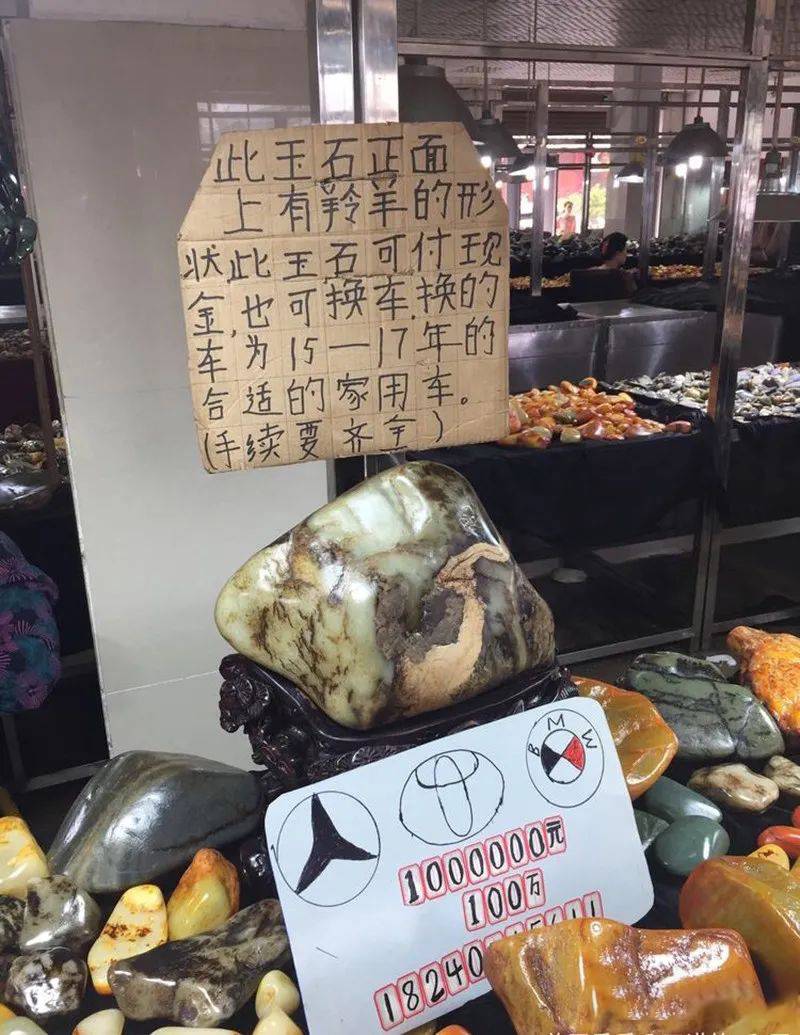 此玉石正面
上有羚羊的形
状此玉石可付现
金,也可换车,换的
车为15—17年的
合适的家用车。
(手续要齐全)
BMW
1000000元
100万
18240